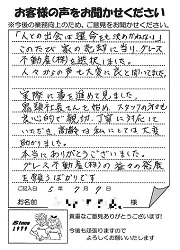 お客様の声をお聞かせください。
※今後の業務向上のため、ご意見をお聞かせください
「人との出会は運命をも決めかねない」
このたび家の売却に当り、グレース
不動産(株)を選択しました。
人々からの声も大変に良と聞いてました。
実際に事を進めて見ました。
社長さんを始め、スタッフの方々も
良心的で親切、丁寧に対応して
いただき、高齢な私にとっては大変
助かりました。
本当にありがとうございました。
グレース不動産(株)の益々の発展
を願うばかりです
ご記入日 5年7月9日
お名前 様
Since
1999
貴重なご意見ありがとうございます!
今後も頑張りますので
よろしくお願いいたします